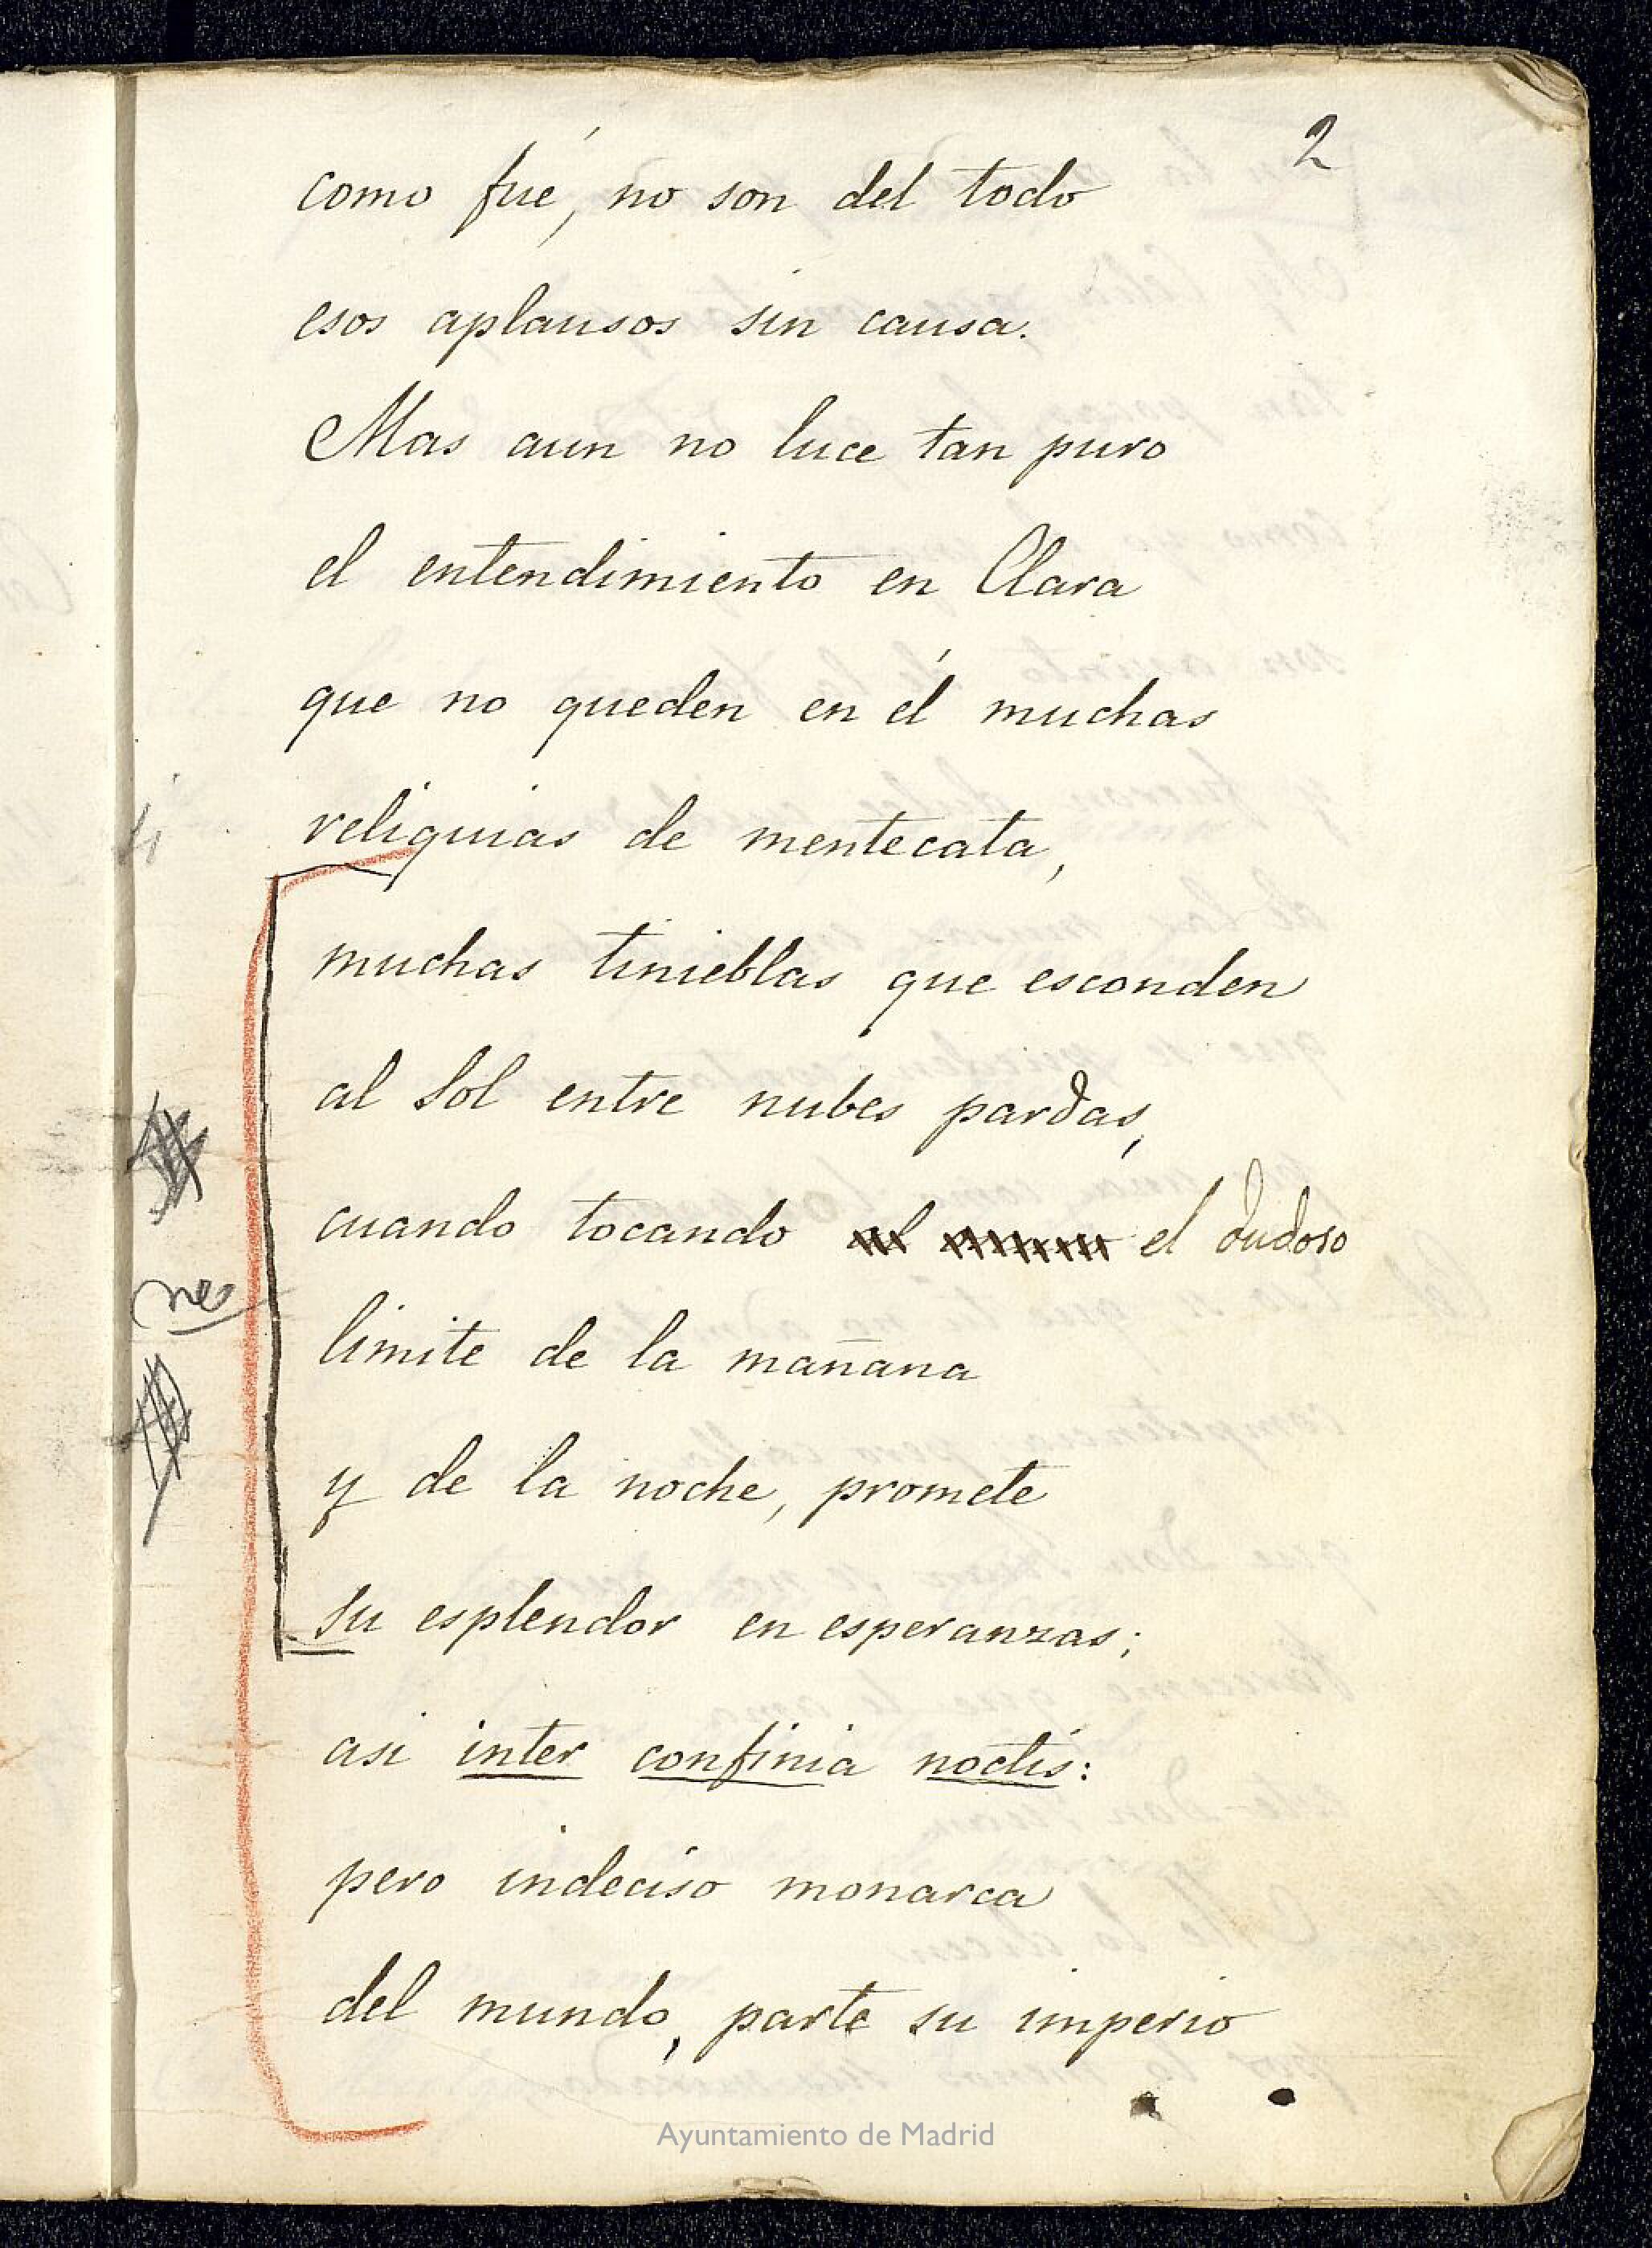 2
como fué, no son del todo
esos aplausos sin causa.
Mas aun no luce tan puro
el entendimiento en Clara
que no queden en él muchas
si
reliquias de mentecata,
muchas tinieblas que esconden
al Sol entre nubes pardas,
cuando tocando al el dudoso
no
limite de la mañana
y de la noche, promete
su esplendor en esperanzas;
asi inter confinia noctis:
pero indeciso monarca
del mundo, parte su imperio
Ayuntamiento de Madrid